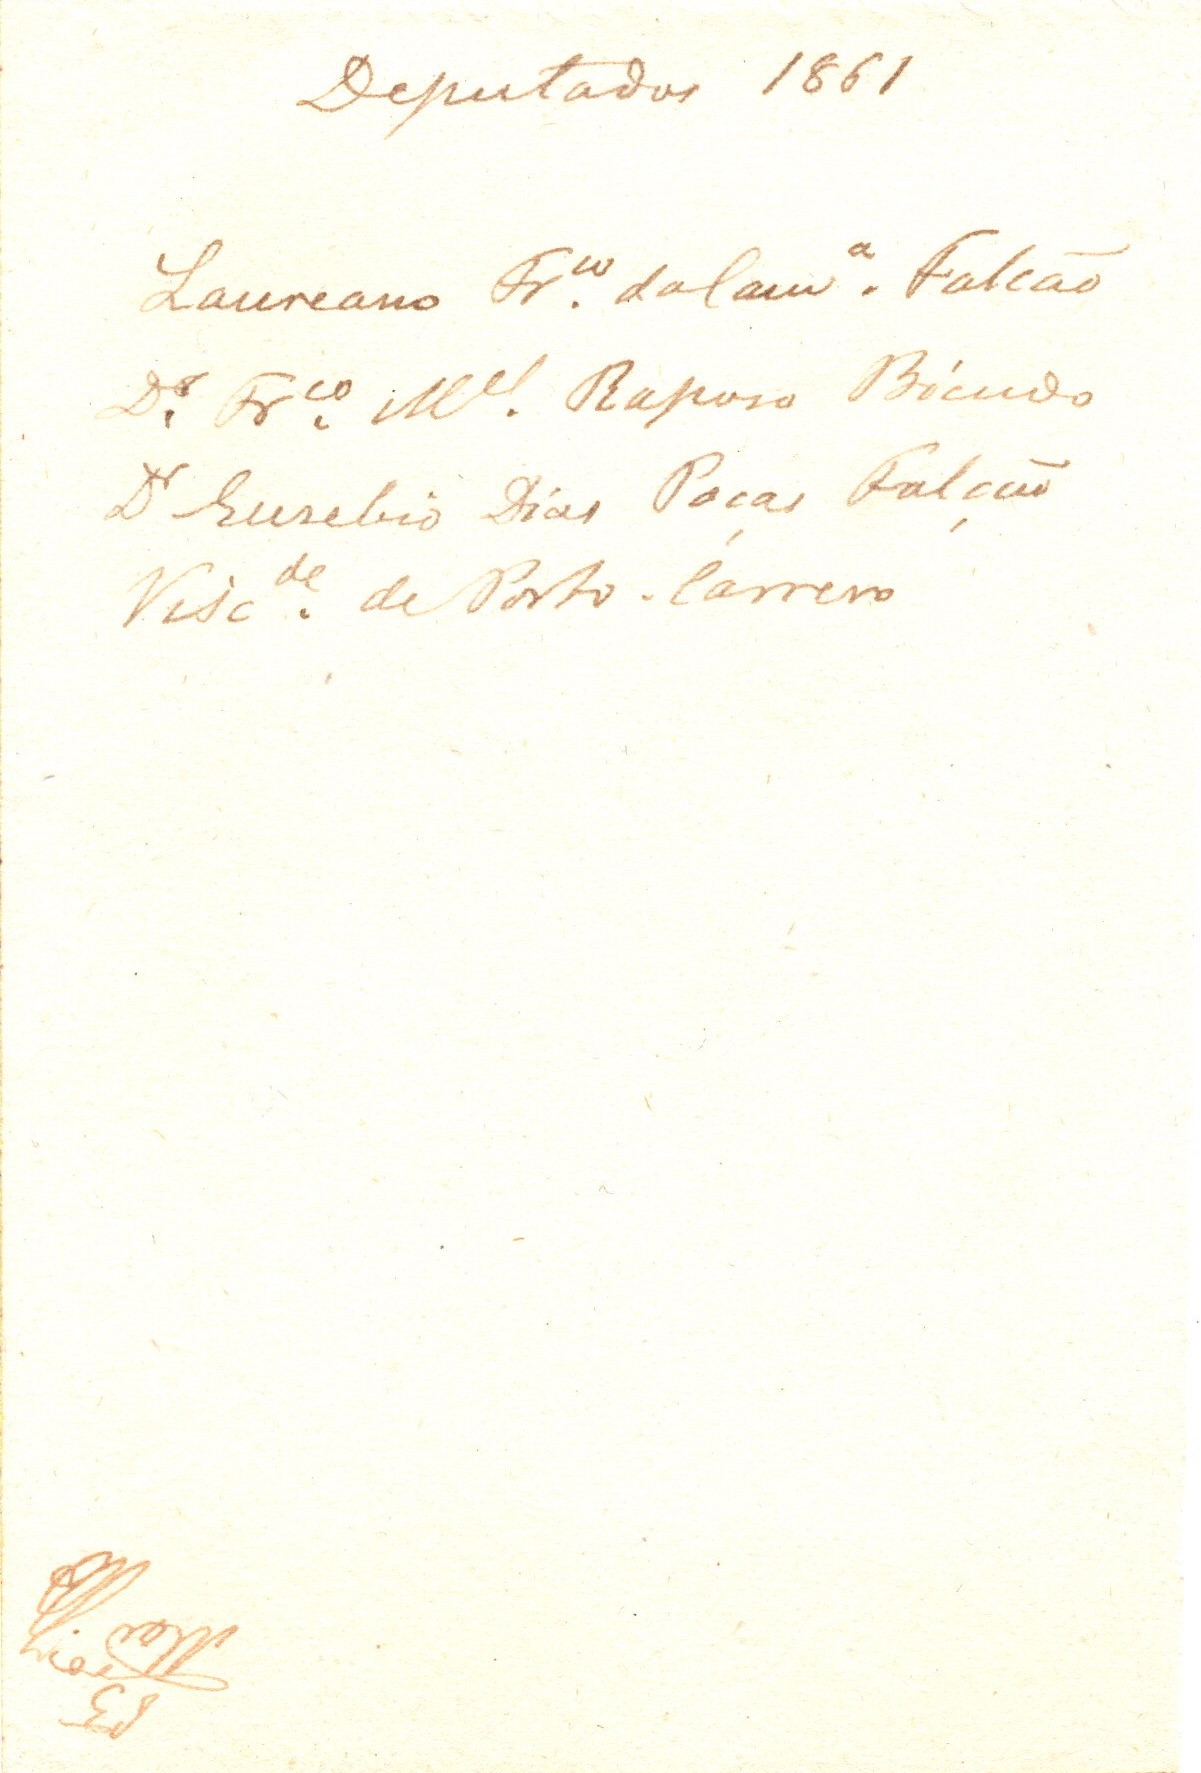 Deputados 1861
Laureano Fr.co da Cam.a Falcão
Dr. Fr.co M.el Raposo Bicudo
Dr Eusebio Dias Poças Falcão
Visc.de de Porto-Carrero